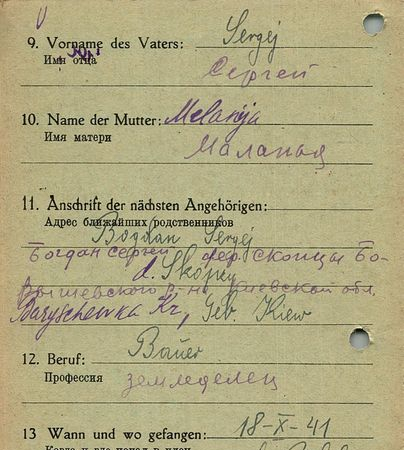 9. Vorname des Vaters: Sergej
Имя отца
Сергей
10. Name der Mutter: Melanija
Имя матери
Маланья
11. Anschrift der nächsten Angehörigen:
Адрес ближайших родственников
Bogdan Sergej
Богдан Сергей дер. Скопцы Бо-
d. Skopzy
рышевского р-на Киевской обл.
Baryschewka Kr, Geb. Kiew
12. Beruf: Bauer
Профессия земледелец
13 Wann und wo gefangen: 18-X-41